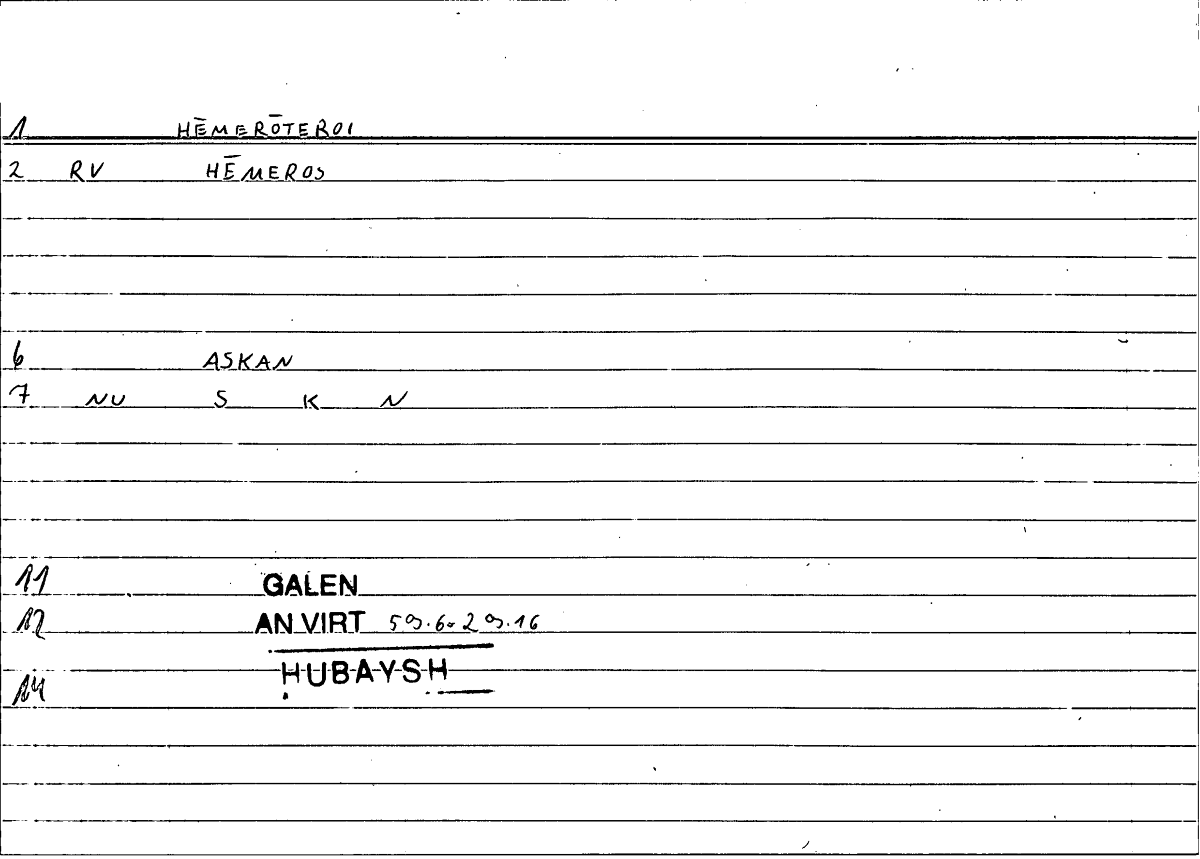 1 HĒMERŌTEROI
2 RV HĒMEROS
6 ASKAN
7 NU S K N
11 GALEN
12 AN VIRT 59.6-29.16
ḤUBAYSH
14